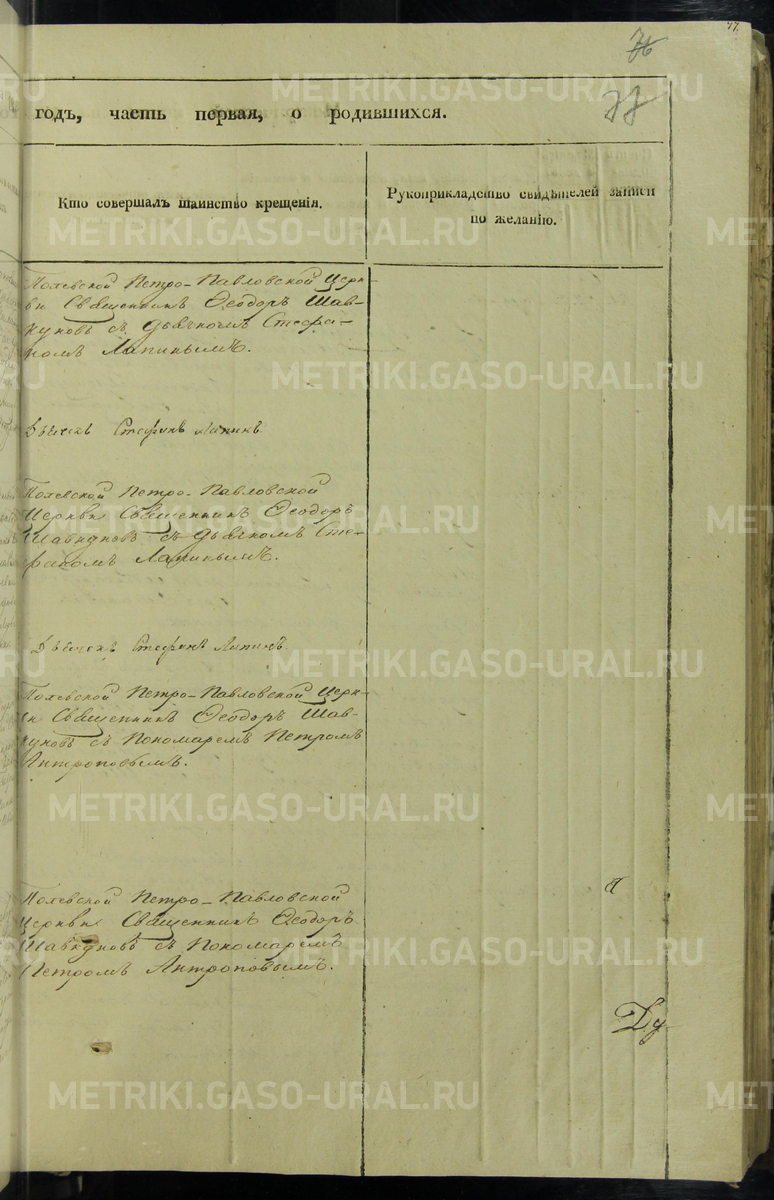 77.
76
77
годъ, часть первая, о родившихся.
Кто совершалъ таинство крещенія.
Рукоприкладство свидѣтелей записи
по желанію.
Полевской Петро-Павловской Церк-
ви Священникъ Ѳеодоръ Шав-
куновъ съ дьячкомъ Стефа-
номъ Лапинымъ.
Дьячекъ Стефанъ Лапинъ
Полевской Петро-Павловской
Церкви Священникъ Ѳеодоръ
Шавкуновъ съ дьячкомъ Сте-
фаномъ Лапинымъ.
Дьячекъ Стефанъ Лапинъ.
Полевской Петро-Павловской Церк-
ви Священникъ Ѳеодоръ Шав-
куновъ съ Пономаремъ Петромъ
Антроповымъ.
Полевской Петро-Павловской
Церкви Священникъ Ѳеодоръ
Шавкуновъ съ Пономаремъ
Петромъ Антроповымъ.
METRIKI.GASO-URAL.RU